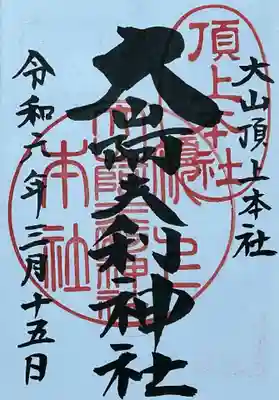 頂上本社
大山頂上本社
大山阿夫利神社
本社
令和六年三月十五日